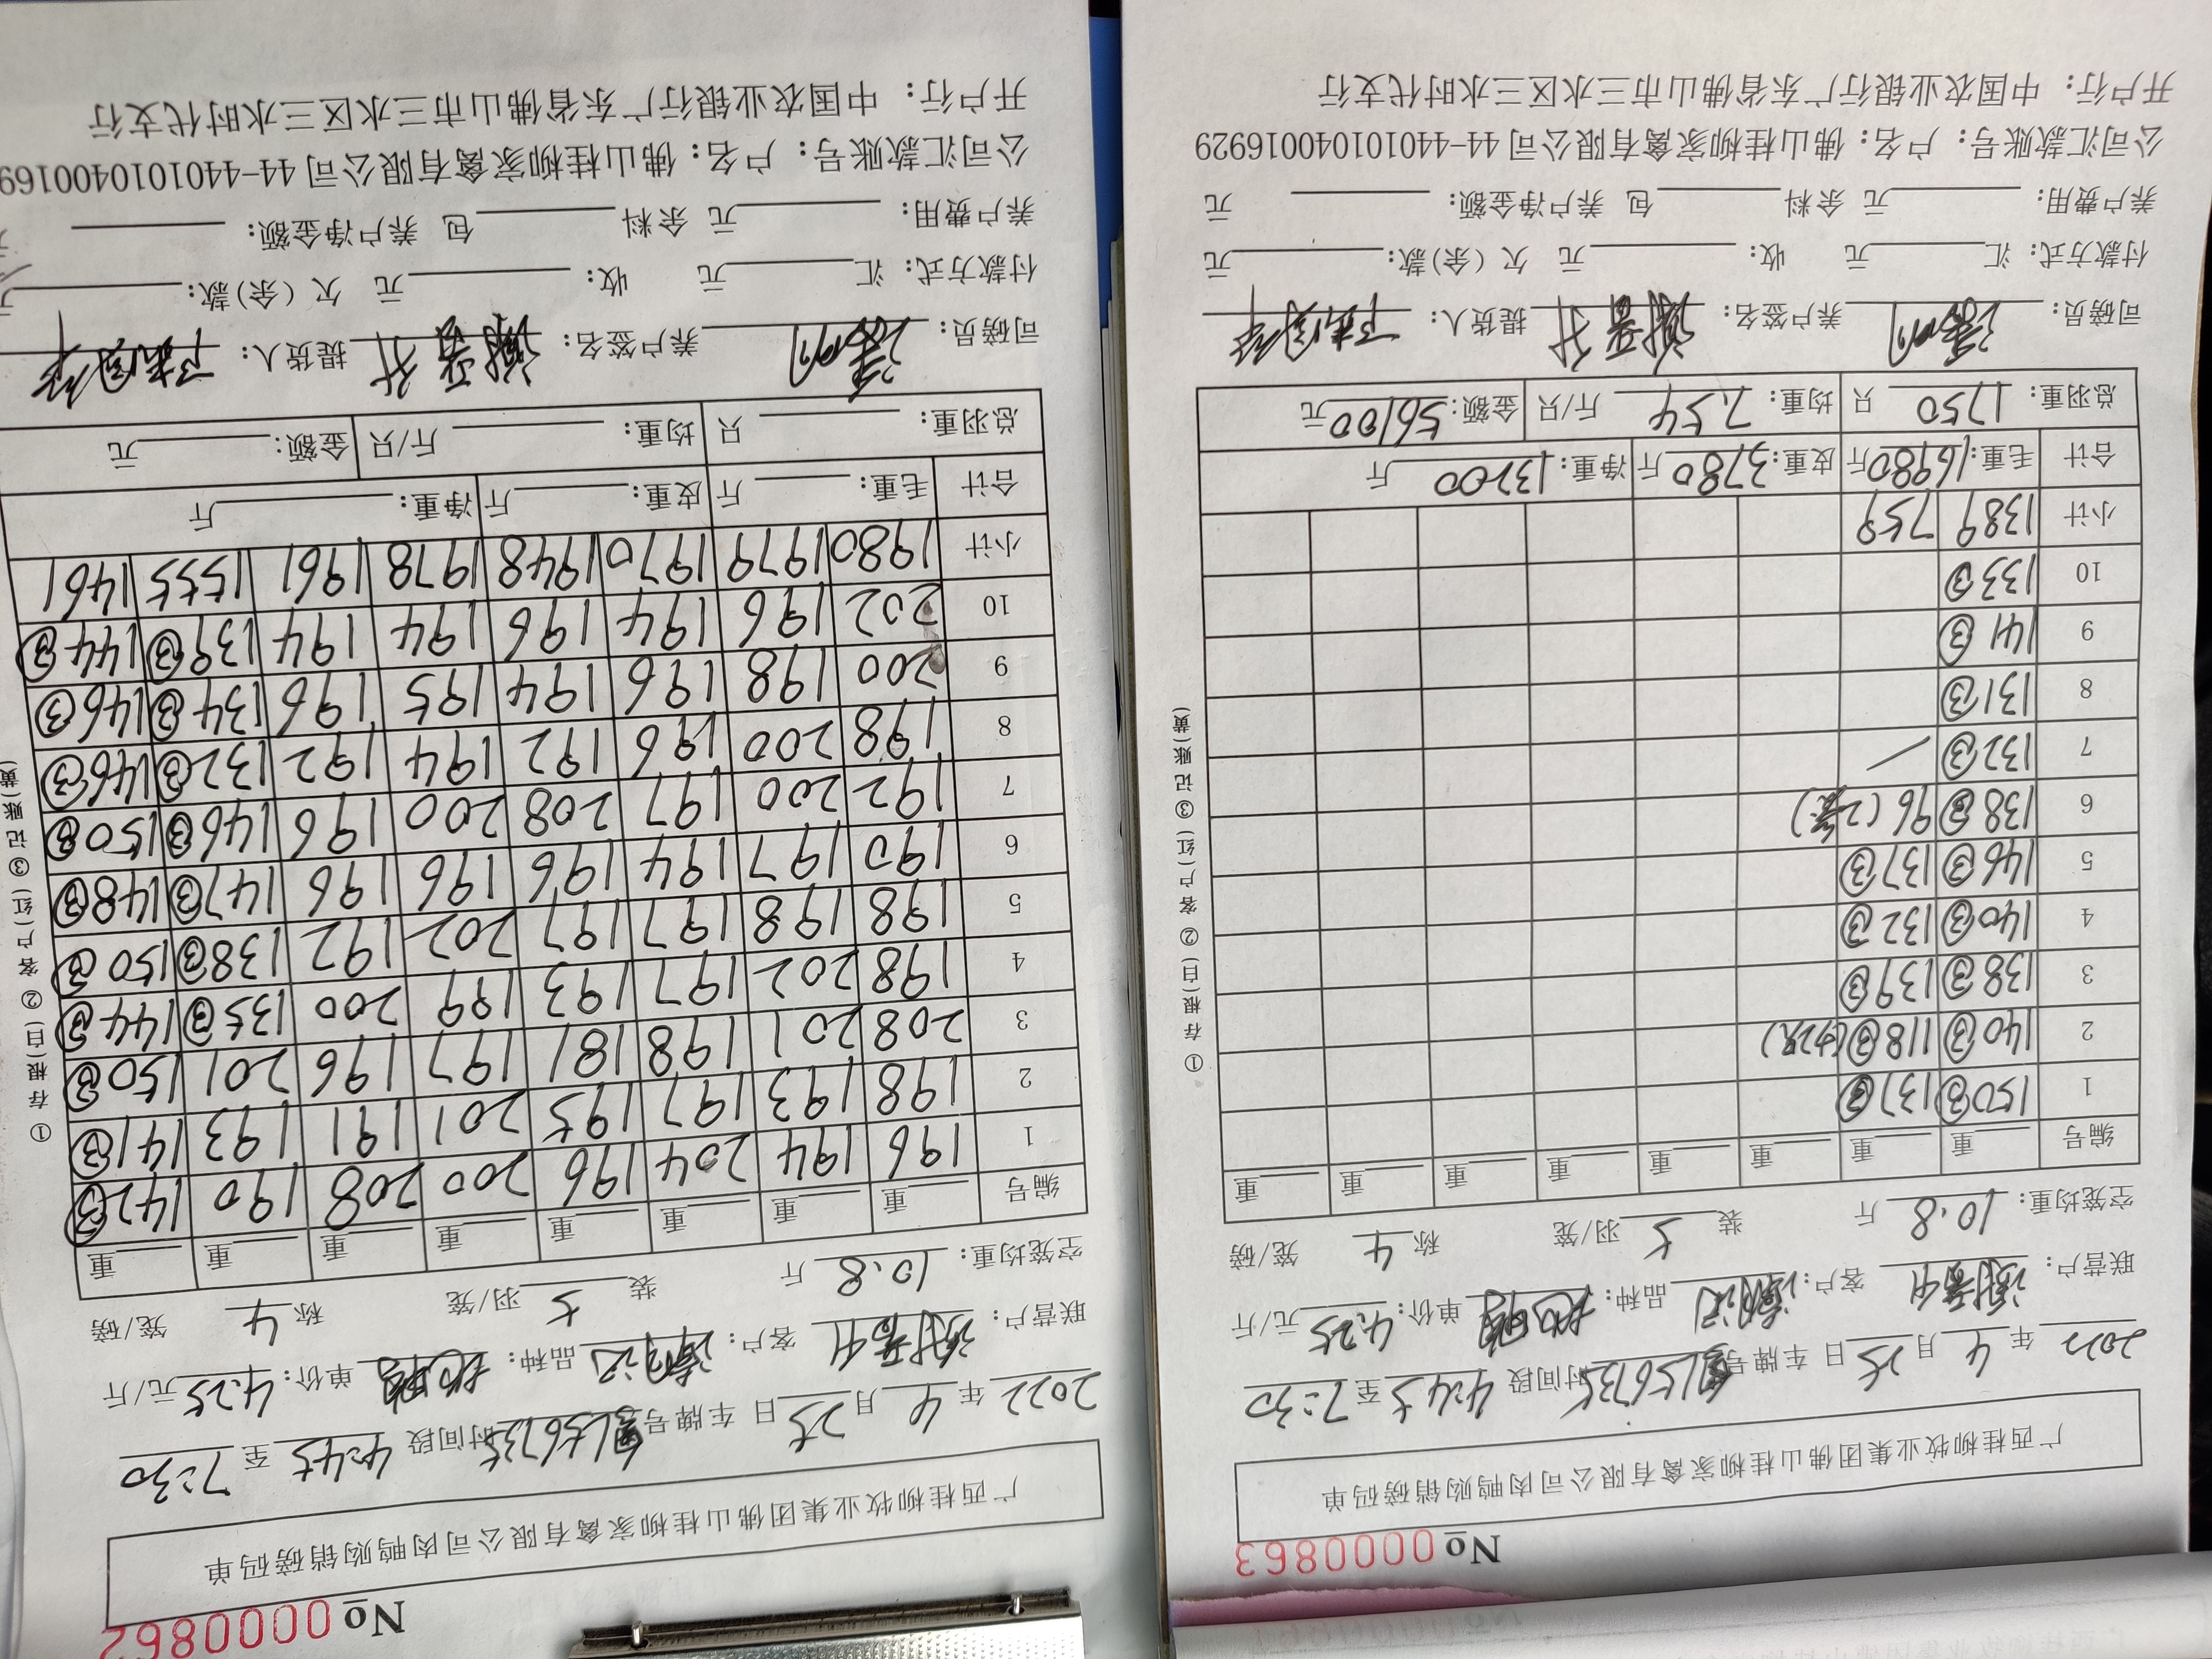 No 0000863
广西桂柳牧业集团佛山桂柳家禽有限公司肉鸭购销磅码单
2022 年 4 月 25 日 车牌号 时间段 4:45 至 7:30
联营户: 客户: 品种: 单价: 4.25 元/斤
空笼均重: 10.8 斤 装 5 羽/笼 称 4 笼/磅
编号 重 重 重 重 重 重 重 重
1 150③ 137③
2 140③ 118③
3 138③ 139③
4 140③ 132③
5 146③ 137③
6 138③ 96
7 132③ /
8 131③
9 141③
10 133③
小计 1389 759
合计 毛重: 16980 斤 皮重: 3780 斤 净重: 13200 斤
总羽重: 1750 只 均重: 7.54 斤/只 金额: 56100 元
司磅员: 养户签名: 提货人:
付款方式: 汇 元 收: 元 欠(余)款: 元
养户费用: 元 余料 包 养户净金额: 元
公司汇款账号: 户名: 佛山桂柳家禽有限公司 44-440101040016929
开户行: 中国农业银行广东省佛山市三水区三水时代支行
①存根(白) ②客户(红) ③记账(黄)
No 0000862
广西桂柳牧业集团佛山桂柳家禽有限公司肉鸭购销磅码单
2022 年 4 月 25 日 车牌号 时间段 4:45 至 7:30
联营户: 客户: 品种: 单价: 4.25 元/斤
空笼均重: 10.8 斤 装 5 羽/笼 称 4 笼/磅
编号 重 重 重 重 重 重 重 重
1 196 194 204 196 200 208 190 142③
2 198 193 197 195 201 191 193 141③
3 208 201 198 181 197 196 201 150③
4 198 202 197 193 199 200 135③ 144③
5 198 198 197 197 202 192 138③ 150③
6 190 197 194 196 196 196 147③ 148③
7 192 200 197 208 200 196 146③ 150③
8 198 200 196 192 194 192 132③ 146③
9 200 198 196 194 195 196 134③ 146③
10 202 196 194 196 194 194 139③ 144③
小计 1980 1979 1970 1948 1978 1961 1555 1461
合计 毛重: 斤 皮重: 斤 净重: 斤
总羽重: 只 均重: 斤/只 金额: 元
司磅员: 养户签名: 提货人:
付款方式: 汇 元 收: 元 欠(余)款:
养户费用: 元 余料 包 养户净金额:
公司汇款账号: 户名: 佛山桂柳家禽有限公司 44-4401010400169
开户行: 中国农业银行广东省佛山市三水区三水时代支行
①存根(白) ②客户(红) ③记账(黄)